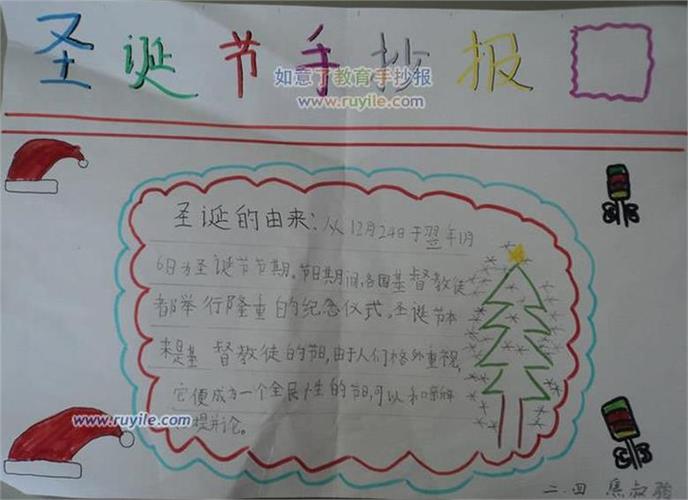 圣诞节手抄报
如意了教育手抄报
www.ruyile.com
圣诞的由来：从12月24日于翌年1月
6日为圣诞节节期。节日期间，各国基督教徒
都举行隆重的纪念仪式。圣诞节本
来是基督教徒的节日，由于人们格外重视，
它便成为一个全民性的节日，可以和新年
提并论。
www.ruyile.com
www.ruyile.com
二.四